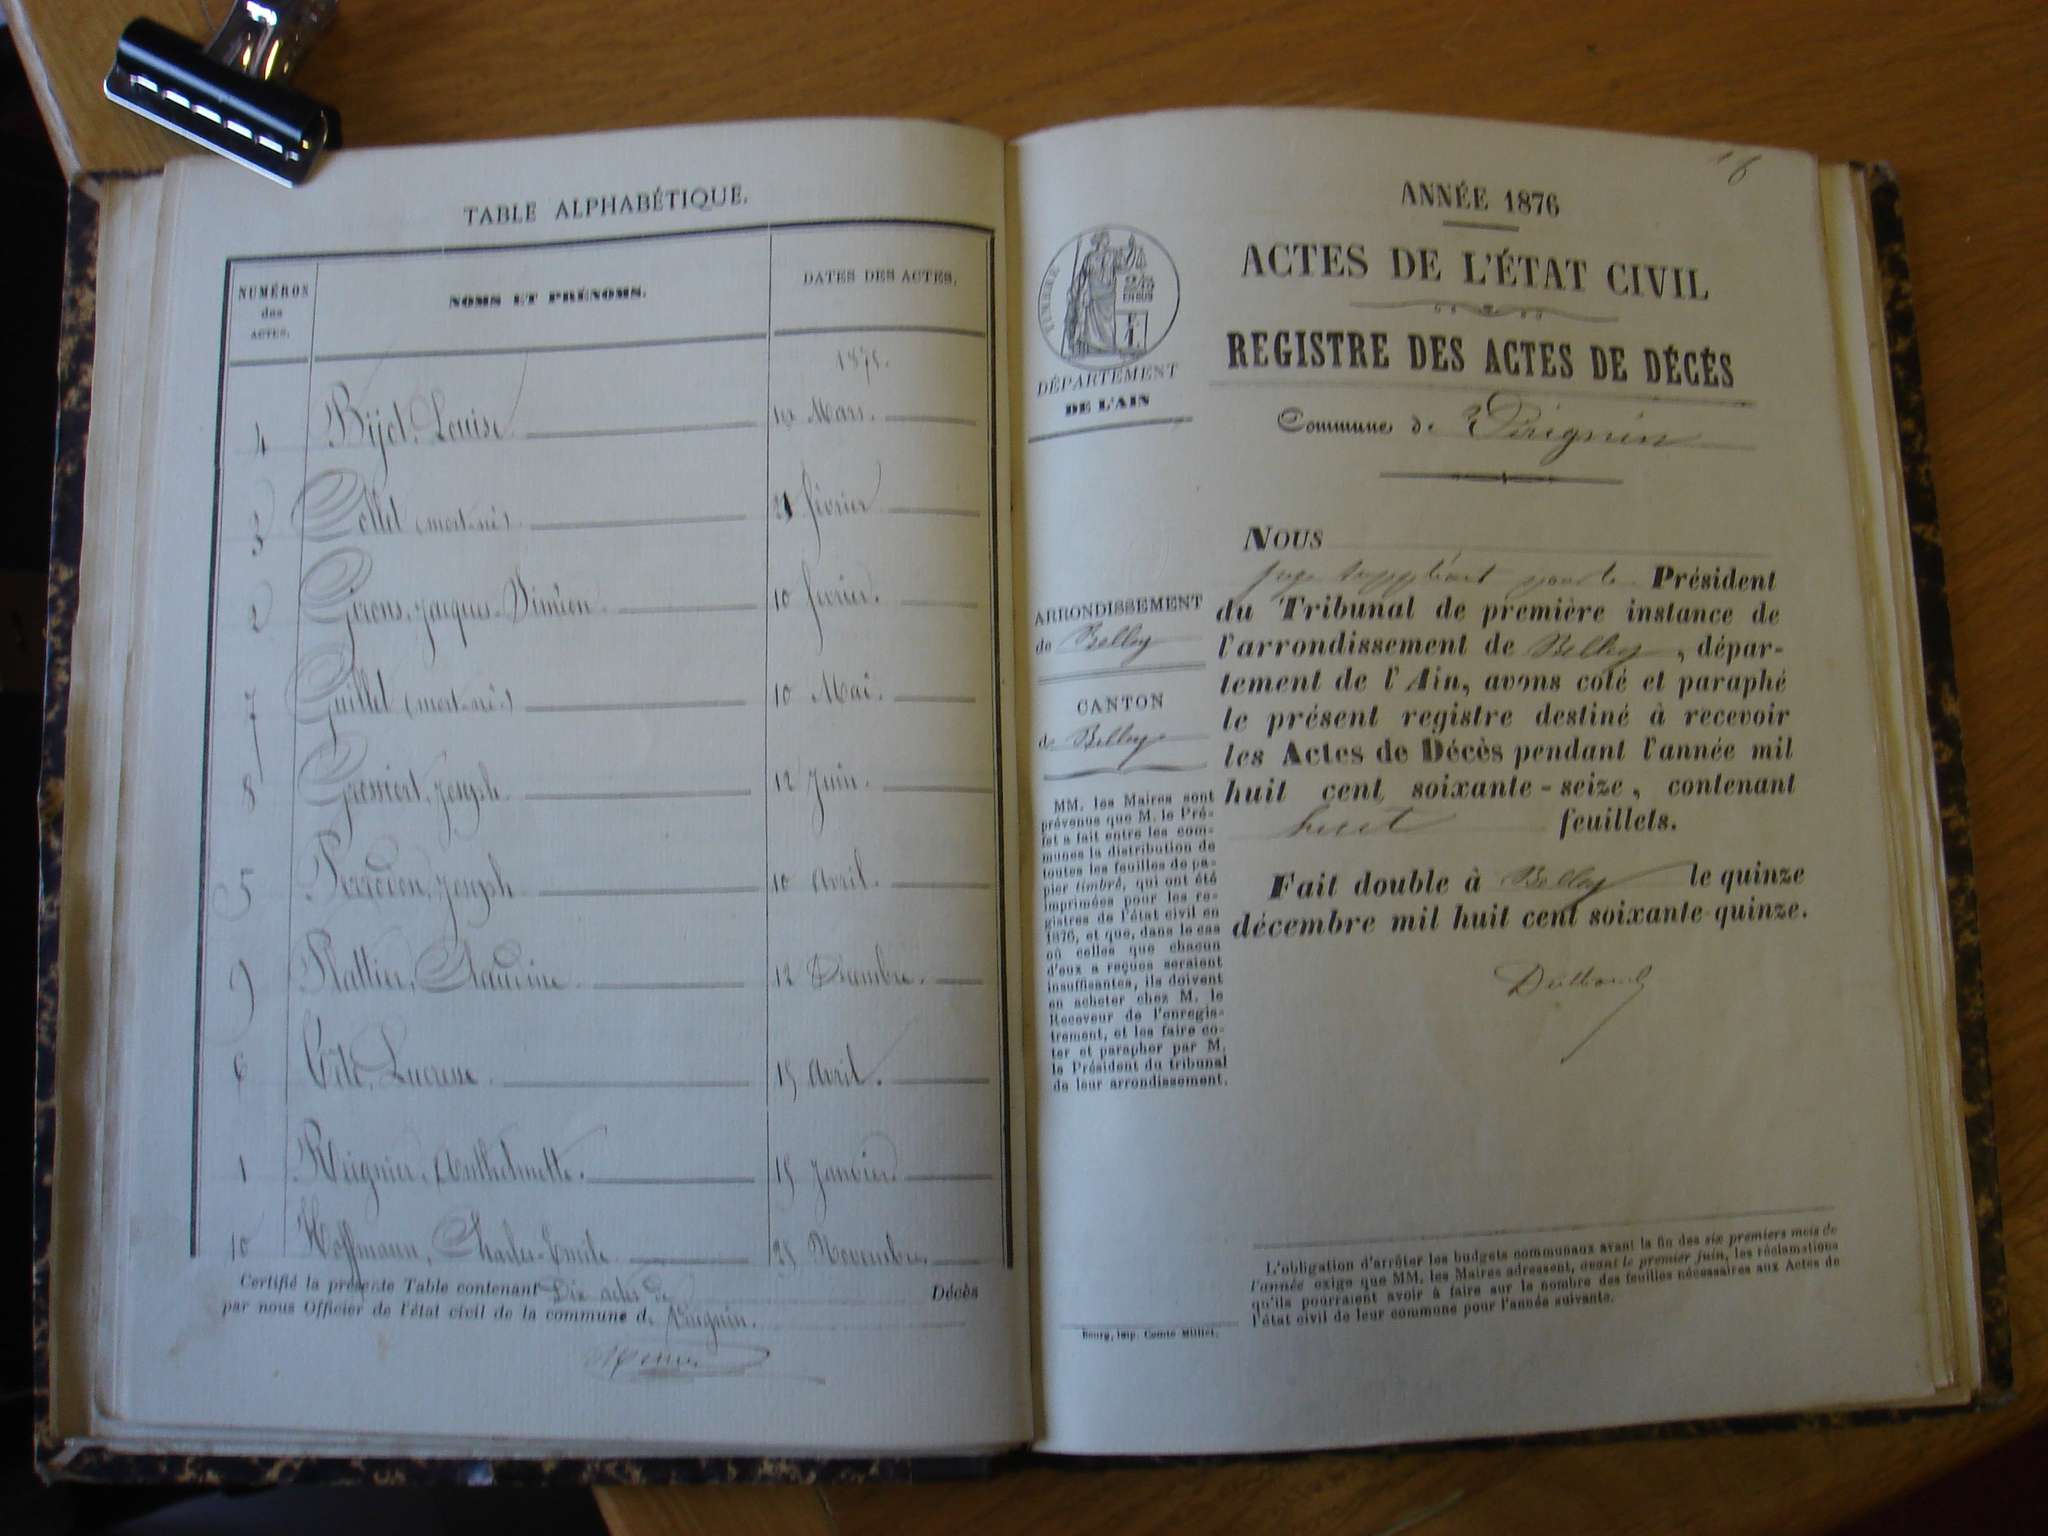 TABLE ALPHABÉTIQUE.
NUMÉROS des ACTES.
NOMS ET PRÉNOMS.
DATES DES ACTES.
1875.
4 Bijot, Louise 10 Mars.
3 Collet (mort-né) 21 février
2 Girons, Jacques-Siméon 10 février.
7 Guillet (mort-né) 10 Mai.
8 Joseph 12 Juin.
5 Perrodon, Joseph 10 Avril.
9 Rattier, Claudine 12 Décembre.
6 15 Avril.
1 Reignier, Anthelmette. 15 Janvier
10 Hoffmann, Charles-Emile 25 Novembre.
Certifié la présente Table contenant Dix actes de Décès
par nous Officier de l'état civil de la commune de Virignin.
16
ANNÉE 1876
ACTES DE L'ÉTAT CIVIL
REGISTRE DES ACTES DE DÉCÈS
Commune de Virignin
TIMBRE
25
EN SUS
DÉPARTEMENT
DE L'AIN
ARRONDISSEMENT
de Belley
CANTON
de Belley
MM. les Maires sont
prévenus que M. le Pré-
fet a fait entre les com-
munes la distribution de
toutes les feuilles de pa-
pier timbré, qui ont été
imprimées pour les re-
gistres de l'état civil en
1876, et que, dans le cas
où celles que chacun
d'eux a reçues seraient
insuffisantes, ils doivent
en acheter chez M. le
Receveur de l'enregis-
trement, et les faire co-
ter et parapher par M.
le Président du tribunal
de leur arrondissement.
NOUS
juge suppléant pour le Président
du Tribunal de première instance de
l'arrondissement de Belley, dépar-
tement de l'Ain, avons coté et paraphé
le présent registre destiné à recevoir
les Actes de Décès pendant l'année mil
huit cent soixante-seize, contenant
huit feuillets.
Fait double à Belley le quinze
décembre mil huit cent soixante-quinze.
L'obligation d'arrêter les budgets communaux avant la fin des six premiers mois de
l'année exige que MM. les Maires adressent, avant le premier juin, les réclamations
qu'ils pourraient avoir à faire sur le nombre des feuilles nécessaires aux Actes de
l'état civil de leur commune pour l'année suivante.
Bourg, imp. Comte Milliet.